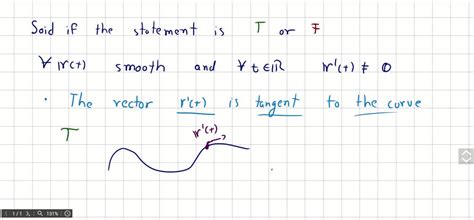 Said if the statement is T or F
∀ r(t) smooth and ∀ t ∈ ℝ r'(t) ≠ 0
· The vector r'(t) is tangent to the curve
T
r'(t)
191%